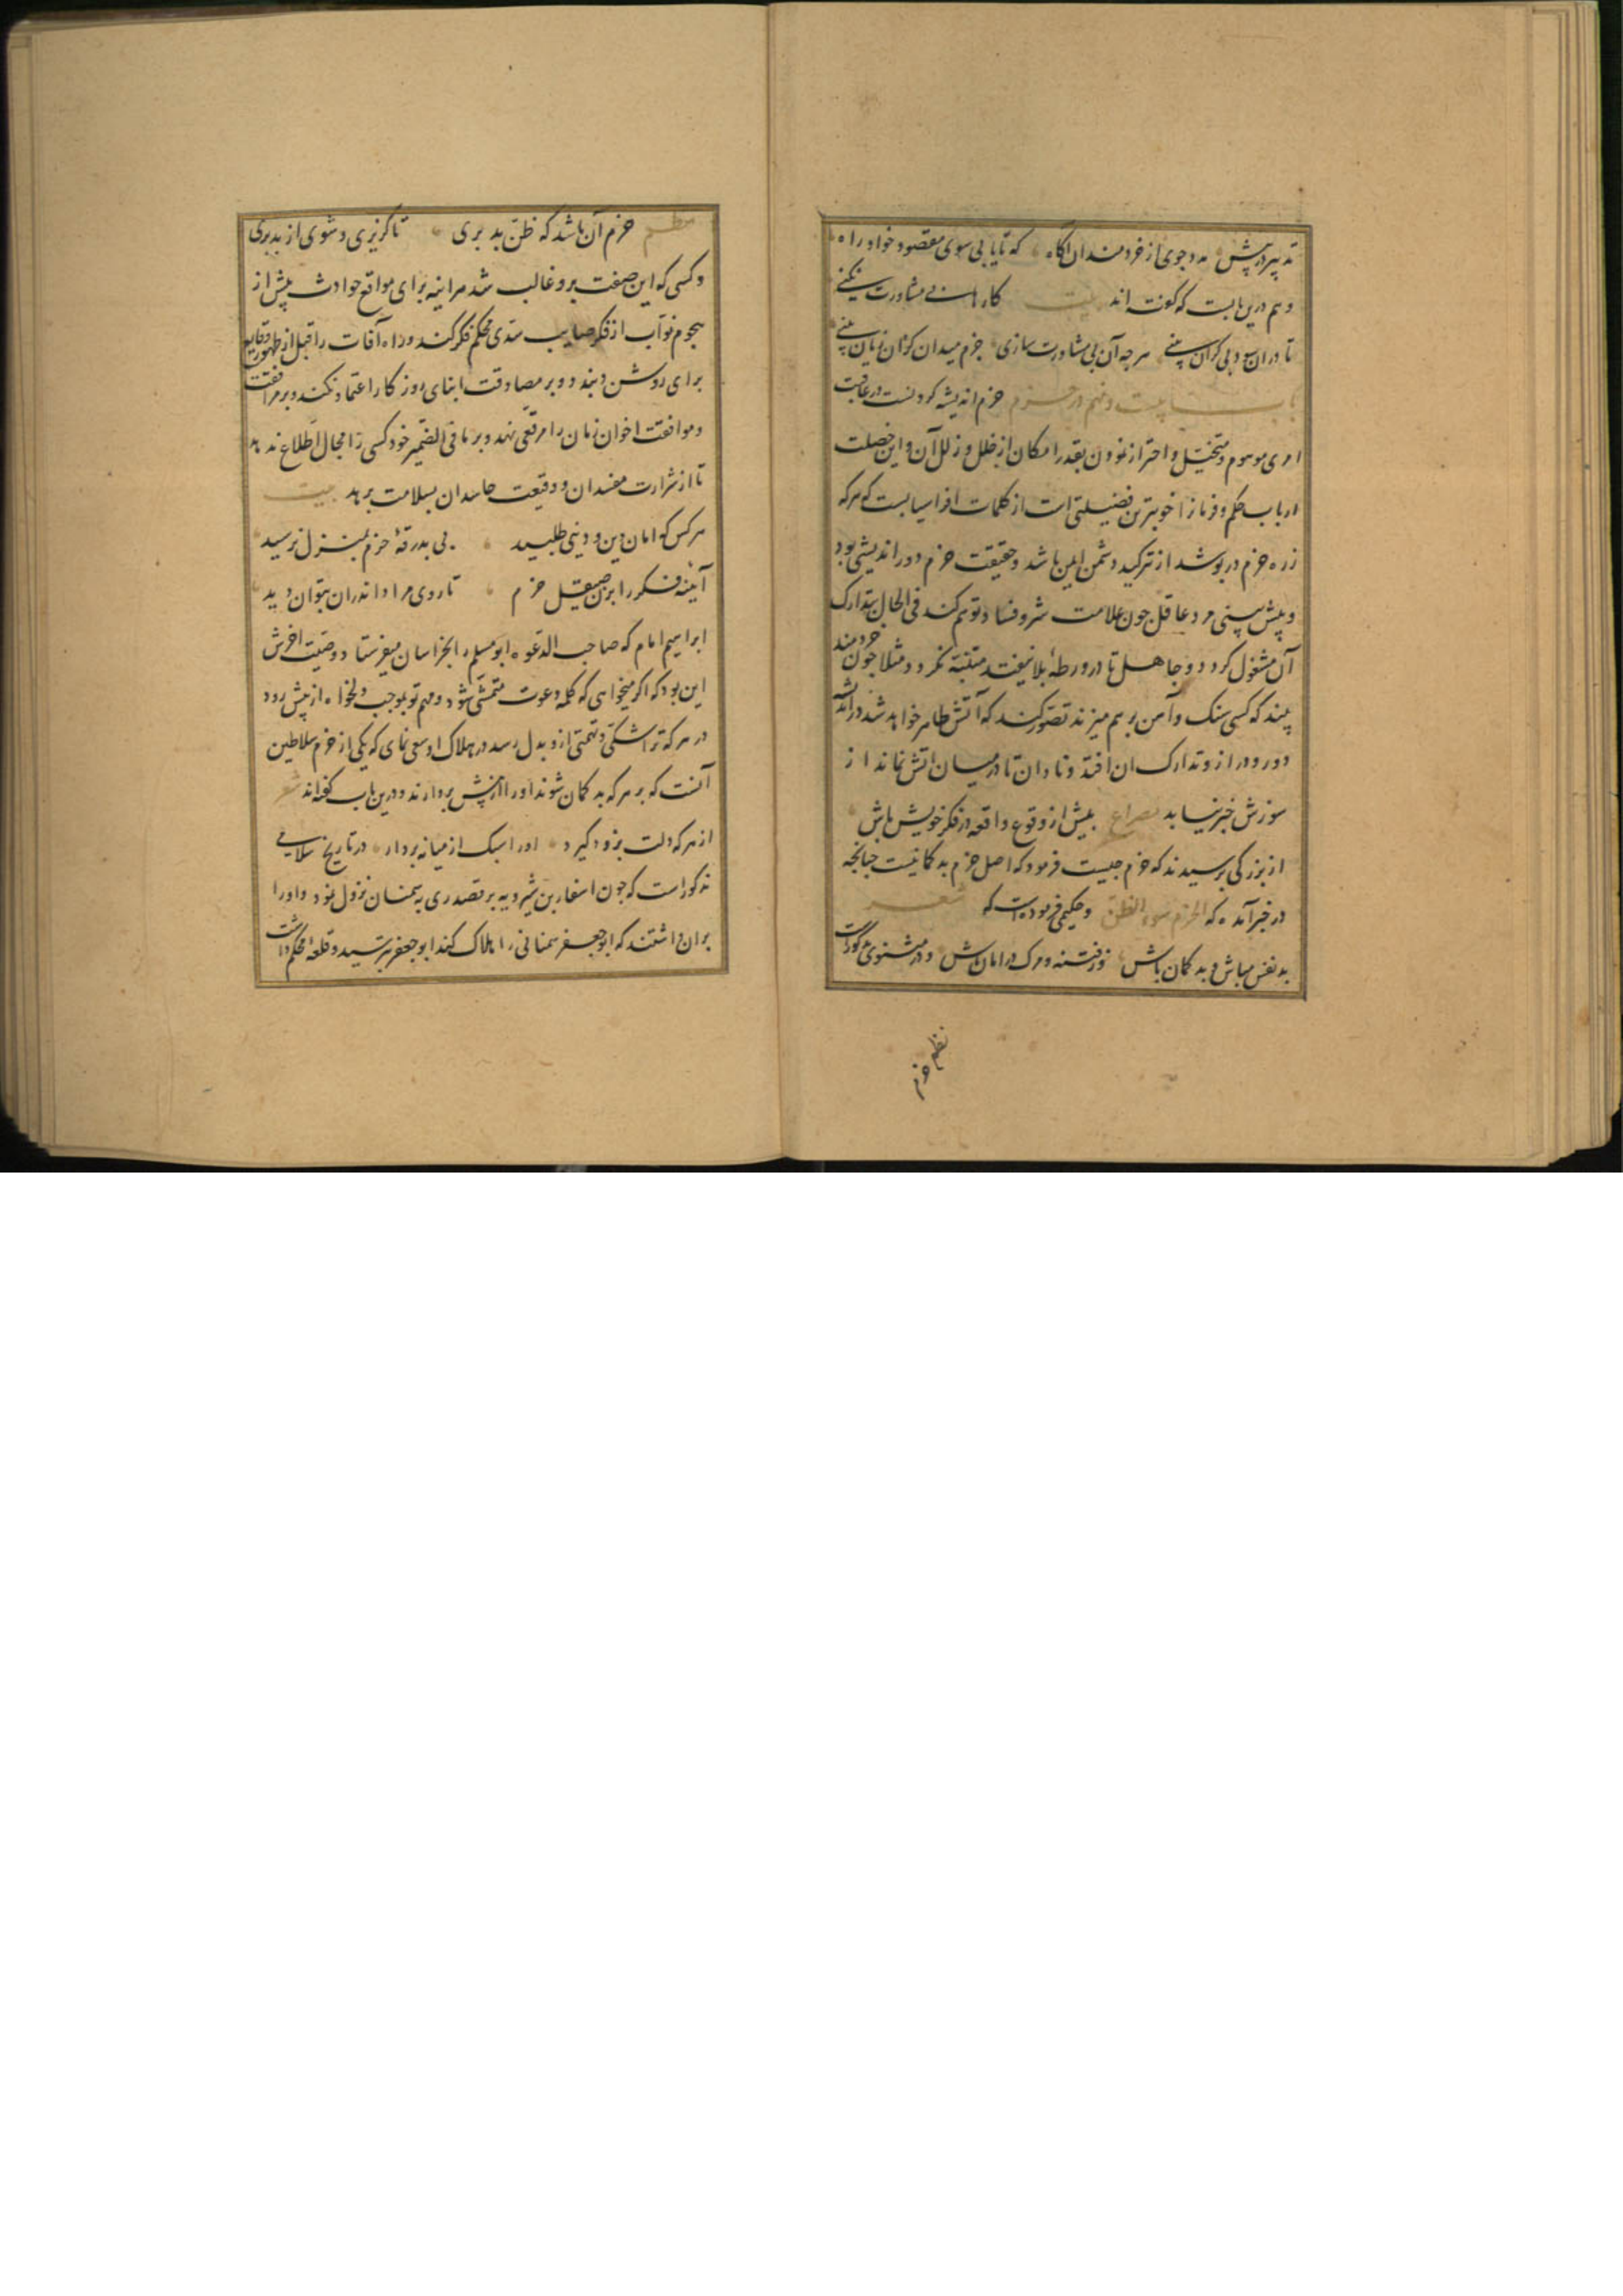 تدبیر در پیش مدد جوی از خردمندان اکاه که تا یابی سوی مقصود خود راه
و هم درین بابست که کفته اند بیت کارها بی مشاورت نکنی
تا دران سود بی کران بینی هرچه آن بی مشاورت سازی جزم میدان کزان زیان بینی
باب بیست و نهم در حزم حزم اندیشه کردنست در عاقبت
امری موهوم و متخیّل و احتراز نمودن بقدر امکان از خلل و زلل آن و این خصلت
ارباب حکم و فرمانرا خوبترین فضیلتی است از کلمات افراسیابست که هرکه
زره حزم در پوشد از تیر کید دشمن ایمن باشد و حقیقت حزم دور اندیشی بود
و پیش بینی مرد عاقل جون علامت شر و فساد توهّم کند فی الحال بتدارک
آن مشغول کردد و جاهل تا در ورطهٔ بلا نیفتد متنبّه نکردد مثلا جون خردمند
بیند که کسی سنک و آهن بر هم میزند تصوّر کند که آتش ظاهر خواهد شد در اندیشهٔ
دور و دراز و تدارک ان افتد و نادان تا در میان اتش نماند از
سوزش خبر نیابد مصراع پیش از وقوع واقعه در فکر خویش باش
از بزرکی پرسیدند که حزم جیست فرمود که اصل حزم بدکمانیست جنانجه
در خبر آمده که الحزم سوء الظن و حکیمی فرموده است که شعر
بد نفس مباش و بد کمان باش وز فتنه و مکر در امان باش و در مثنوی مذکورست
نظم حزم
نظم حزم آن باشد که ظنّ بد بری تا کریزی و شوی از بد بری
و کسی که این صفت برو غالب شد هراینه برای مواقع حوادث پیش از
هجوم نوآب از فکر صایب سدّی محکم فکر کند و راه آفات را قبل از ظهور وقایع
برای روشن ببندد و بر مصادقت ابنای روزکار اعتماد نکند و بر مرافقت
و موافقت اخوان زمان را مرقعی نهد و بر ما فی الضّمیر خود کسی را مجال اطّلاع ندهد
تا از شرارت مفسدان و وقیعت حاسدان بسلامت برهد بیت
هرکس که امان دین و دنیی طلبید بی بدرقهٔ حزم بمنزل نرسید
آیینه فکر را بزن صیقل حزم تا روی مراد اندران بتوان دید
ابراهیم امام که صاحب الدّعوه ابو مسلم را بخراسان میفرستاد وصیّت اخرش
این بود که اکر میخواهی که کلمه دعوت متمشّی شود و مهم تو بموجب دلخواه از پیش رود
در هر که ترا شکّی و تهمتی ازو بدل رسد در هلاک او سعی نمای که یکی از حزم سلاطین
آنست که بر هر که بد کمان شوند اورا از پیش بردارند و درین باب کفته اند شعر
از هر که دلت بزو دکیرد اورا سبک از میانه بردار در تاریخ سلامی
مذکور است که جون اسفار بن شیرویه بر قصد ری به سمنان نزول نمود و اورا
بران داشتند که ابوجعفر سمنانی را هلاک کند ابوجعفر بترسید و قلعه محکم داشت